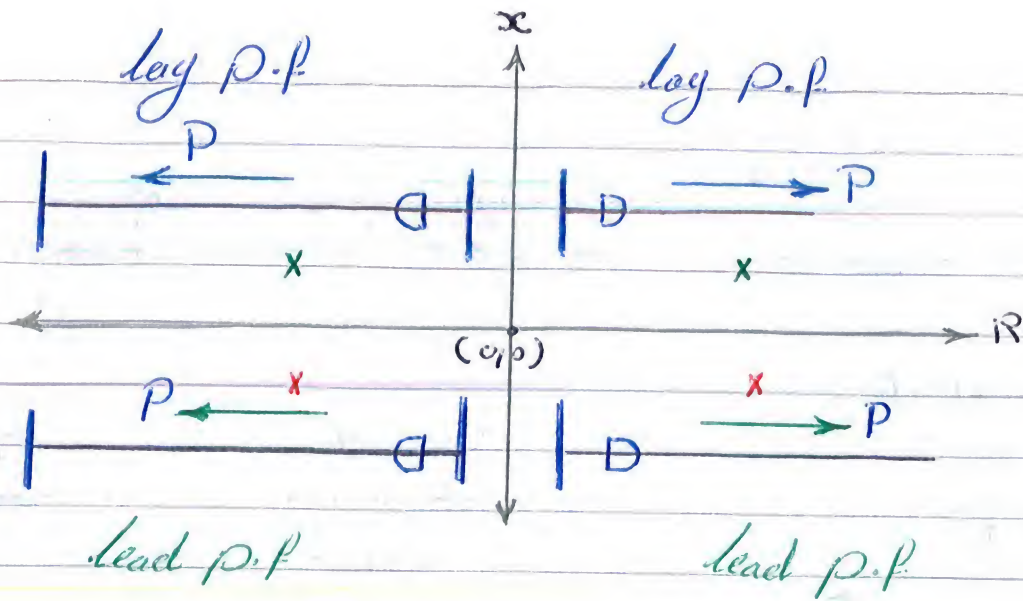 x
lag p.f
lag p.f.
P
P
x
x
R
(0,0)
x
x
P
P
lead p.f
lead p.f.